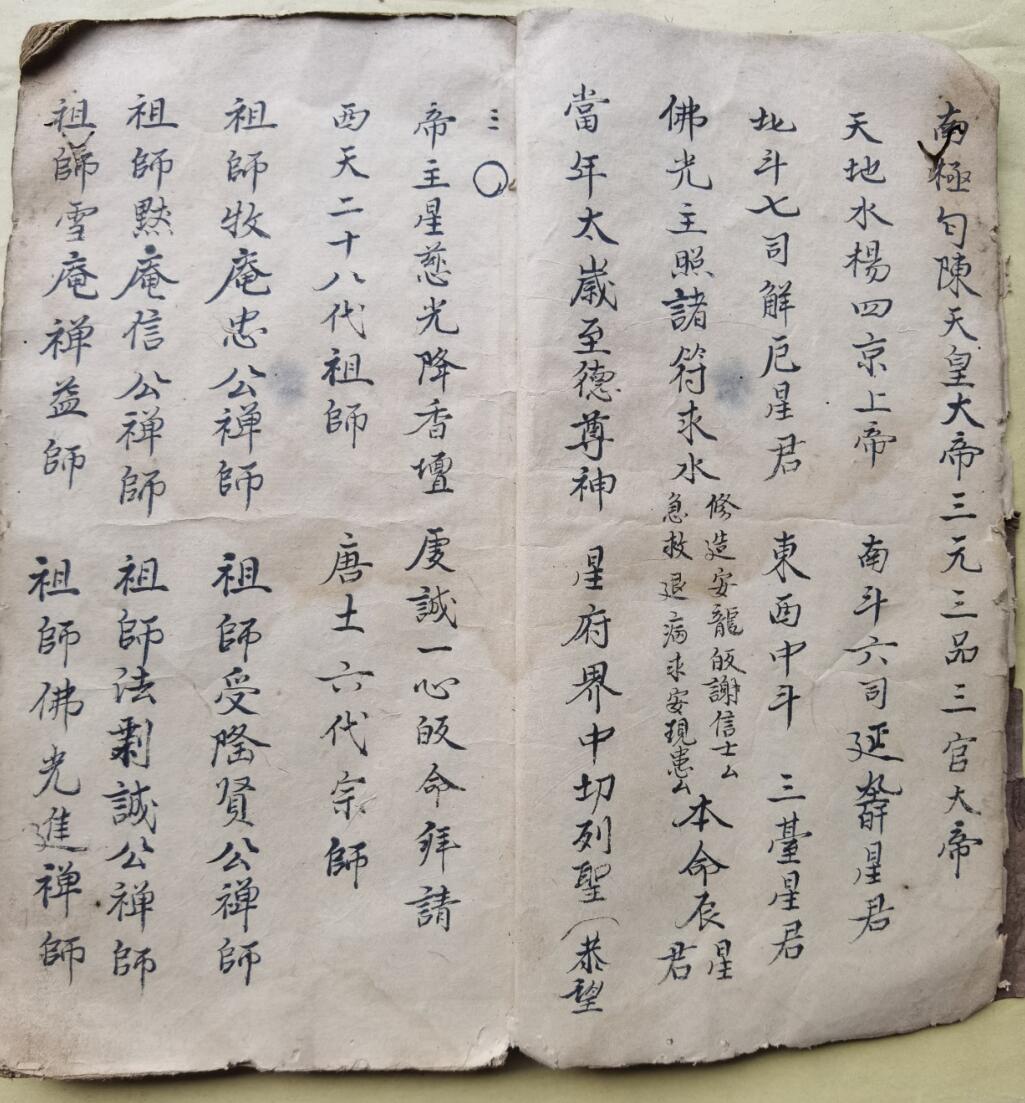 南極勾陳天皇大帝三元三品三官大帝
天地水楊四京上帝 南斗六司延星君
北斗七司解厄星君 東西中斗 三䑓星君
佛光主照諸符求水
修造安龍皈謝信士厶
急救退病求安現患厶
本命辰星君
當年太歲至德尊神 星府界中切列聖(恭望
三〇
帝主星慈光降香壇 虔誠一心皈命拜請
西天二十八代祖師 唐土六代宗師
祖師牧庵忠公禅師 祖師受隆賢公禅師
祖師黙庵信公禅師 祖師法剚誠公禅師
祖師雪庵禅益師 祖師佛光進禅師